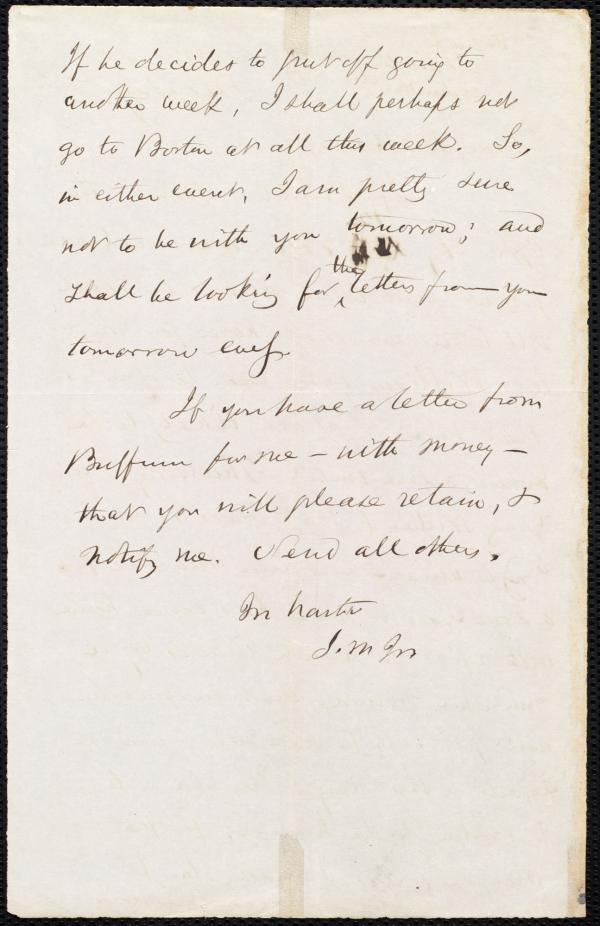 If he decides to put off going to
another week, I shall perhaps not
go to Boston at all this week. So,
in either event, I am pretty sure
not to be with you tomorrow; and
shall be looking for the letters from you
tomorrow eve'g.
If you have a letter from
Buffum for me - with money -
that you will please retain, &
notify me. Send all others.
In haste
J. M Jr